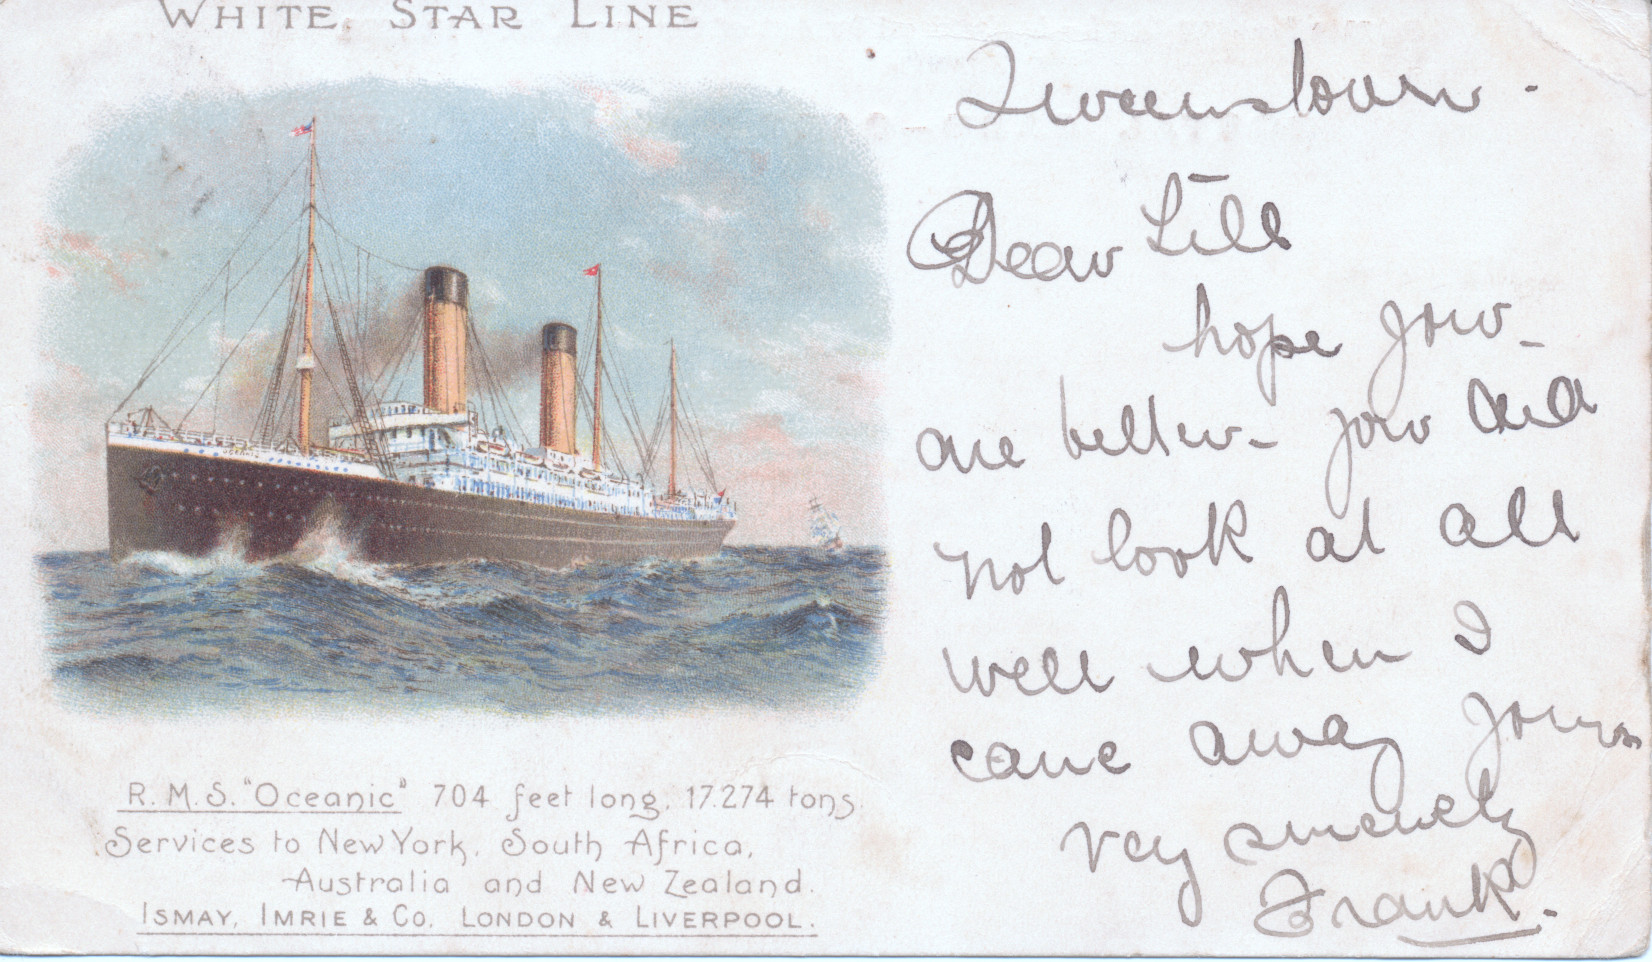 WHITE STAR LINE
R.M.S. "Oceanic" 704 feet long, 17.274 tons.
Services to New York, South Africa,
Australia and New Zealand.
ISMAY, IMRIE & Co, LONDON & LIVERPOOL.
Queenstown.
Dear Lill
hope you
are better - you did
not look at all
well when I
came away yours
very sincerely
Frank.